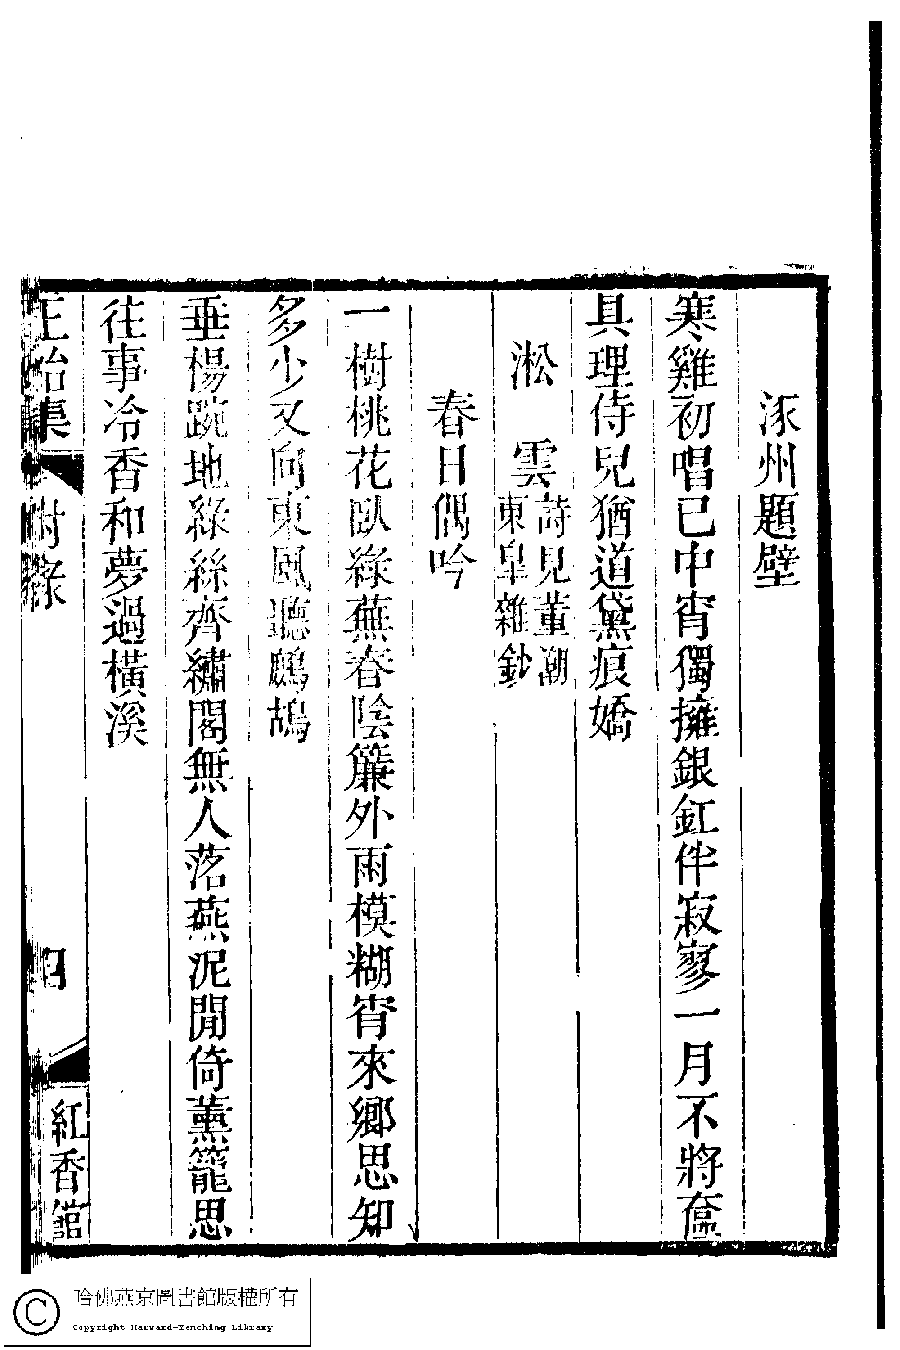 涿州題壁
寒雞初唱已中宵獨擁銀釭伴寂寥一月不將奩
具理侍兒猶道黛痕嬌
淞雲
詩見董潮
東皐雜鈔
春日偶吟
一樹桃花臥綠蕪春陰簾外雨模糊宵來鄉思知
多少又向東風聽鷓鴣
垂楊踠地綠絲齊繡閣無人落燕泥閒倚薰籠思
往事冷香和夢過橫溪
正始集
附錄
四
紅香館
哈佛燕京圖書館版權所有
Copyright Harvard-Yenching Library